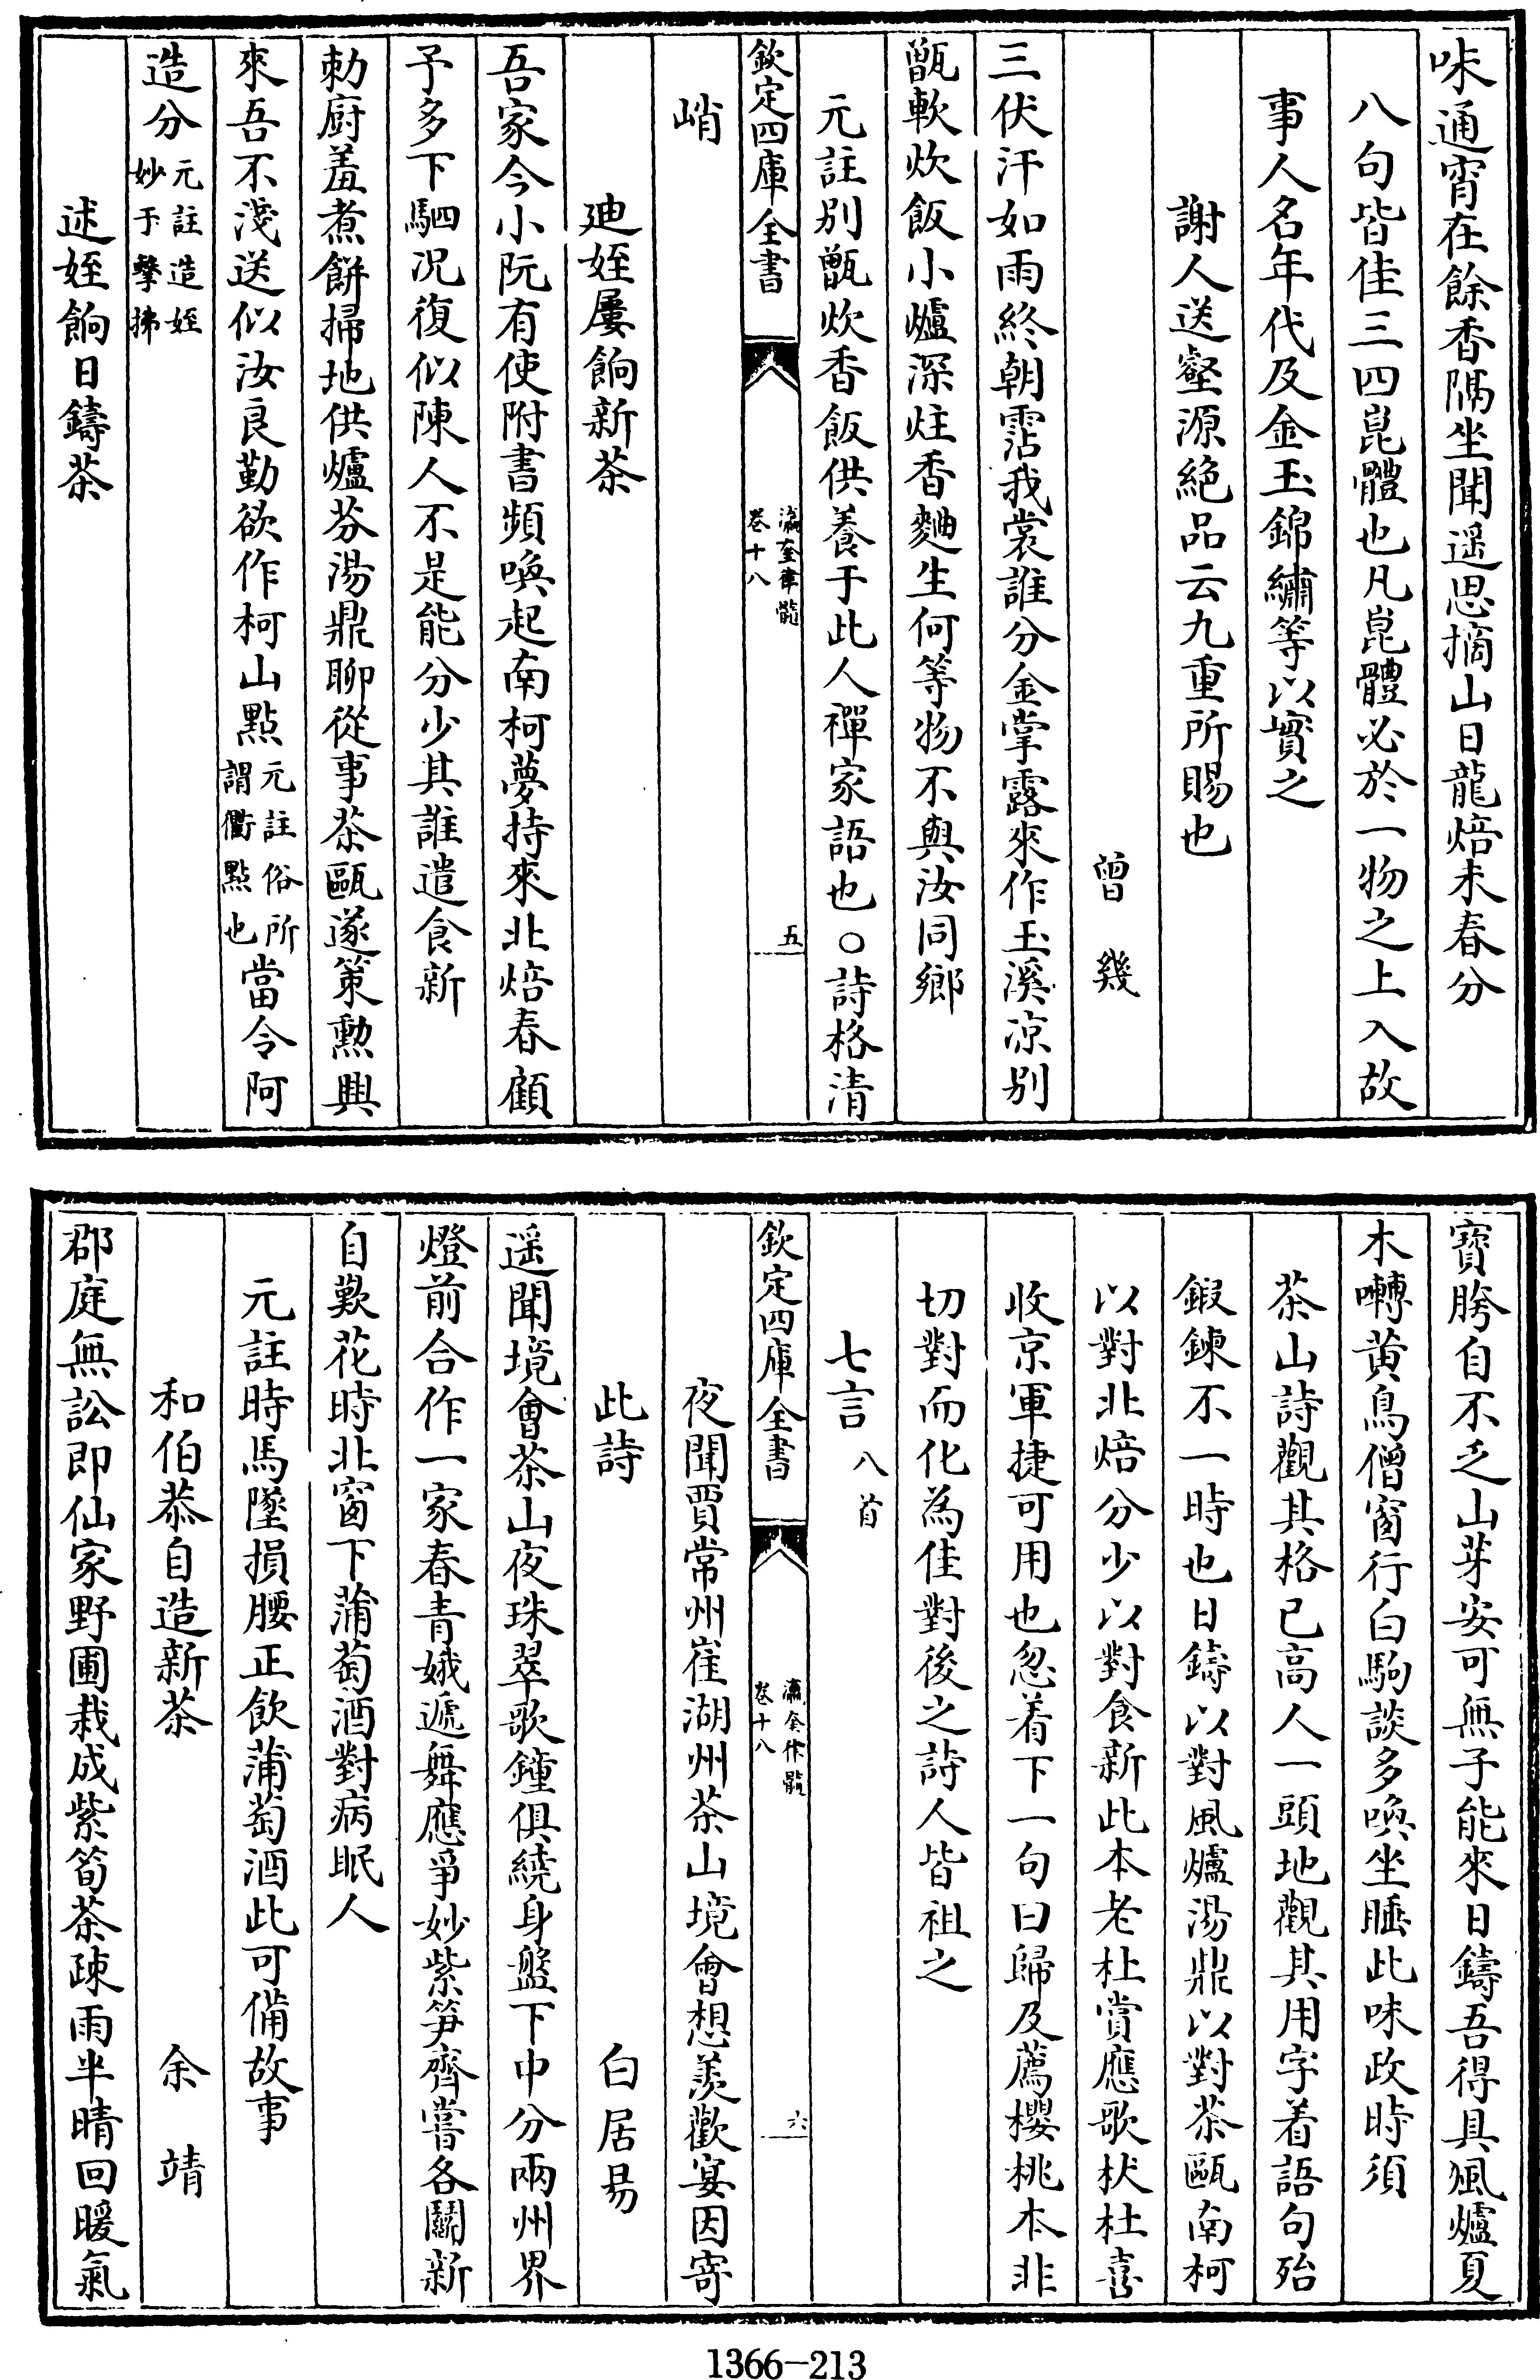 味通宵在餘香隔坐聞遥思摘山日龍焙未春分
八句皆佳三四崑體也凡崑體必於一物之上入故
事人名年代及金玉錦繡等以實之
謝人送壑源絶品云九重所賜也
曾幾
三伏汗如雨終朝霑我裳誰分金掌露來作玉溪凉别
甑軟炊飯小爐深炷香麯生何等物不與汝同鄉
元註别甑炊香飯供養于此人禪家語也○詩格清
欽定四庫全書
瀛奎律髓
卷十八
五
峭
廸姪屢餉新茶
吾家今小阮有使附書頻喚起南柯夢持來北焙春顧
予多下駟况復似陳人不是能分少其誰遣食新
勅厨羞煮餅掃地供爐芬湯鼎聊從事茶甌遂策勲興
來吾不淺送似汝良勤欲作柯山點元註俗所謂衢點也當令阿
造分元註造姪妙于擊拂
述姪餉日鑄茶
寶胯自不乏山芽安可無子能來日鑄吾得具風爐夏
木囀黄鳥僧窗行白駒談多喚坐睡此味政時須
茶山詩觀其格已高人一頭地觀其用字着語句殆
鍛鍊不一時也日鑄以對風爐湯鼎以對茶甌南柯
以對北焙分少以對食新此本老杜賞應歌杕杜喜
收京軍捷可用也忽着下一句曰歸及薦櫻桃本非
切對而化為佳對後之詩人皆祖之
七言八首
欽定四庫全書
瀛奎律髓
卷十八
六
夜聞賈常州崔湖州茶山境會想羨歡宴因寄
此詩
白居易
遥聞境會茶山夜珠翠歌鐘俱繞身盤下中分兩州界
燈前合作一家春青娥遞舞應爭妙紫笋齊嘗各鬭新
自歎花時北窗下蒲萄酒對病眠人
元註時馬墜損腰正飲蒲萄酒此可備故事
和伯恭自造新茶
余靖
郡庭無訟即仙家野圃栽成紫筍茶疎雨半晴回暖氣
1366-213